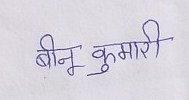 बीनू कुमारी